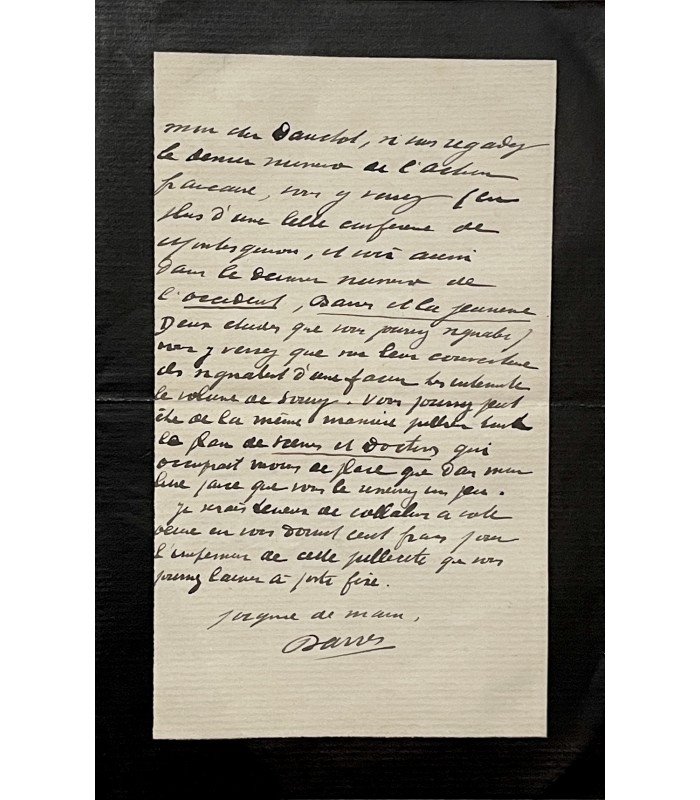 mon cher Dauchot, si vous regardez
le dernier numéro de l'Action
française, vous y verrez (en
plus d'une belle conférence de
Montesquiou, et voici aussi
dans le dernier numéro de
l'occident, Barrès et la jeunesse
Deux études que vous pourrez signaler)
vous y verrez que sur leur couverture
ils signalent d'une façon très
le volume de Vous pourrez peut
être de la même manière publier toute
le plan de Scènes et Doctrines qui
occuperait moins de place que dans mon
livre parce que vous le un peu.
Je serais heureux de collaborer à cette
en vous donnant cent francs pour
l'impression de cette que vous
pourrez laisser à poste fixe.
poignée de main,
Barrès